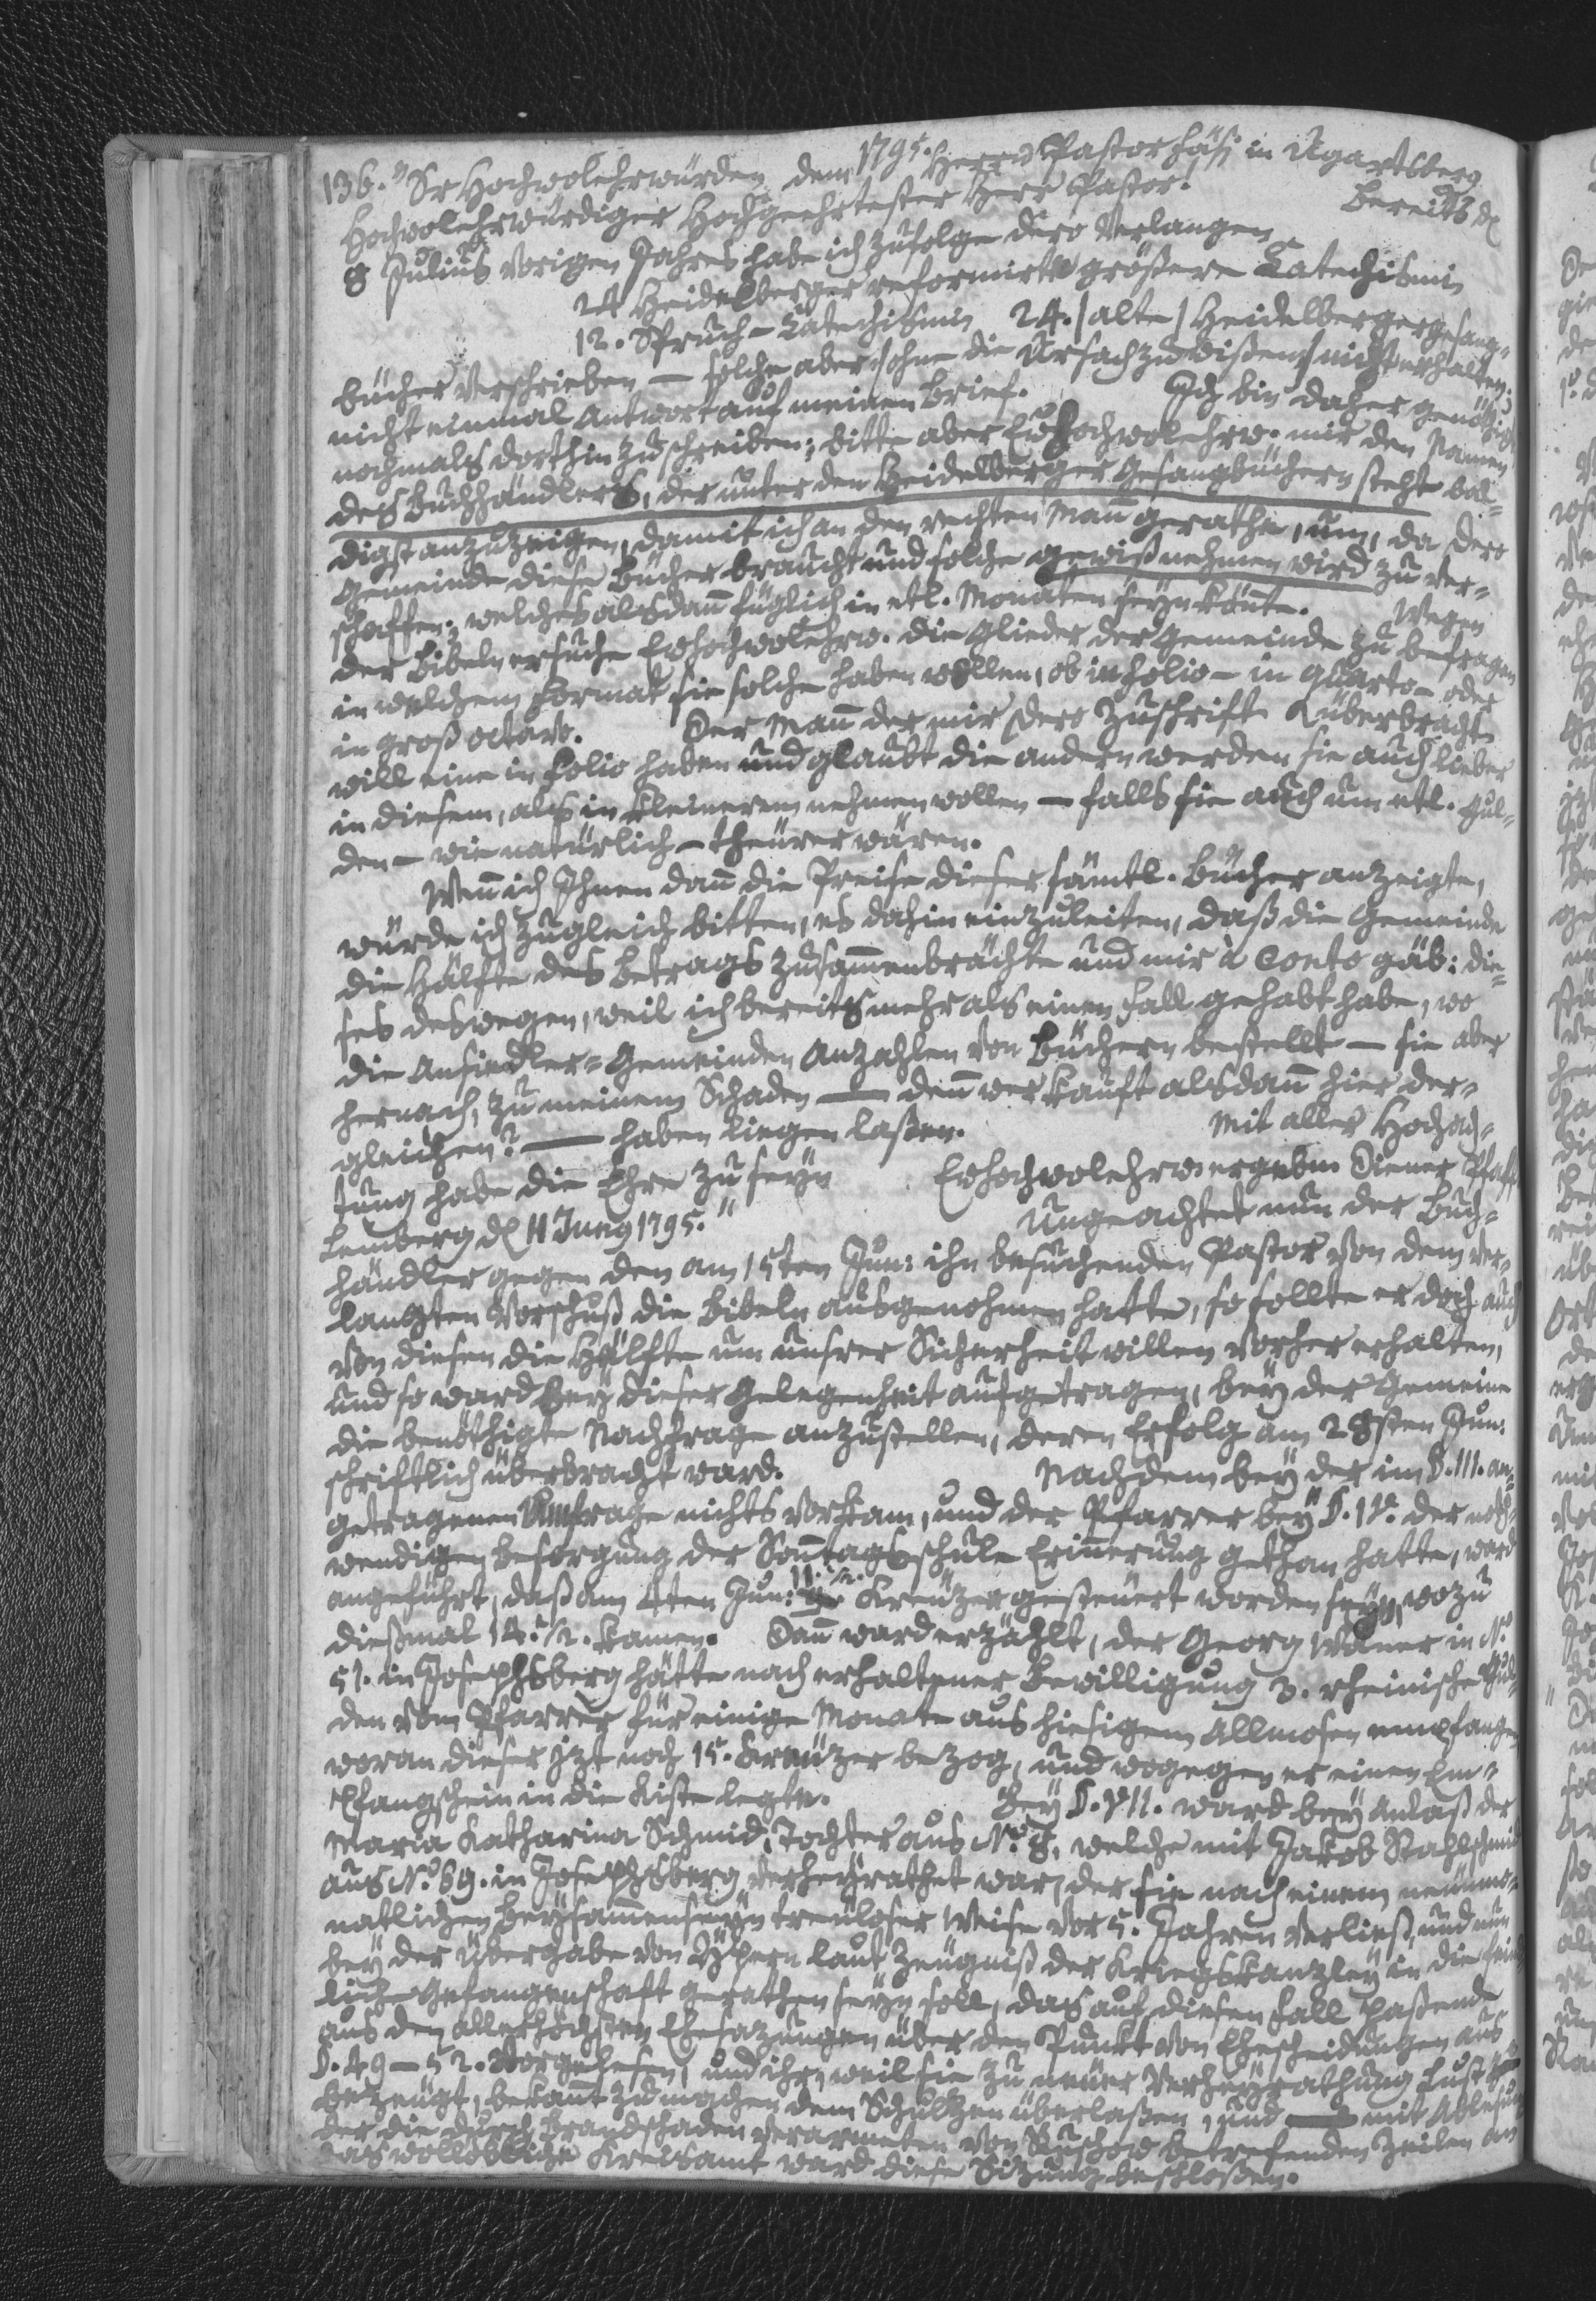 1795.
136. "Sr Hochwolehrwürden dem Herrn Pastor Häfi in Ugartsberg
Hochwolehrwürdiger Hochgeehrtester Herr Pastor! Bereits dn
8 Julius vorigen Jahres habe ich zufolge dero Verlangen
24 Heidelberger reformirte größere Catechismis
12. Spruch-Catechismis 24. /alte/ Heidelbergergesang-
bücher verschrieben – solche aber /ohne die Ursach zu wißen/ nicht erhalten:
nicht einmal Antwort auf meinen Brief. Ich bin daher genöthigt
nochmals dorthin zu schreiben; bitte aber EwHochwolehrw. mir den Namen
des Buchhändlers, der unter den Heidelberger Gesangbüchern steht bal-
digst anzuzeigen, damit ich an den rechten Mann gerathe, um, da dero
Gemeinde diese Bücher braucht und solche gewiß nehmen wird zu ver-
schaffen; welches alsdann füglich in etl. Monaten seyn könnte. Wegen
der Bibeln ersuche EwHochwolehrw. die Glieder der Gemeinde zu befragen
in welchem Format sie solche haben wollen, ob in folio – in Quarto – oder
in groß octav. Der Mann der mir dero Zuschrift überbracht
will eine in Folio haben und glaubt die andern werden sie auch lieber
in diesem, als in kleinerem nehmen wollen – falls sie auch um etl. Gul-
den – wie natürlich – theurer wären.
Wenn ich Ihnen dann die Preise dieser sämtl. Bücher anzeigte,
würde ich zugleich bitten, es dahin einzuleiten, daß die Gemeinde
die Hälfte des Betrags zusammenbrächte und mir à Conto gäb: die-
ses deswegen, weil ich bereits mehr als einen Fall gehabt habe, wo
die Ansiedler-Gemeinden Anzahlen von Büchern bestellt – sie aber
hernach, zu meinem Schaden — denn wer kauft alsdann hier der-
gleichen? — haben liegen laßen. Mit aller Hochach-
tung habe die Ehre zu seyn EwHochwolehrw ergebn Diener Pfaff
Lemberg dn 11 Juny 1795." Ungeachtet nun der Buch-
händler gegen den am 15ten Jun: ihn besuchenden Pastor von dem ver-
langten Vorschuß die Bibeln ausgenohmen hatte, so sollte er doch auch
von diesen die Hälfte um unsrer Sicherheit willen vorher erhalten,
und so ward bey dieser Gelegenheit aufgetragen, bey der Gemeine
die benöthigte Nachfrage anzustellen, deren Erfolg am 28sten Jun.
schriftlich überbracht ward. Nachdem bey der im §. III. an-
getragenen Umfrage nichts vorkam, und der Pfarrer bey §. IV. der noth-
wendigen Besorgung der Sonntagsschule Erinnerung gethan hatte, ward
angeführt, daß am 4ten Jun: 11. 1/2. Kreuzer gesteuert worden seyn, wozu
dießmal 14. 1/2. kamen. Dann ward erzählt, der Georg Waner in No.
51. in Josephsberg hätte nach erhaltener Bewilligung 3. rheinische Gul-
den vom Pfarrer für einige Monate aus hiesigem Allmosen empfangen
woran dieser jzt noch 15. Kreuzer bezog, und wogegen er einen Em-
pfangschein in die Kiste legte. Bey §. VII. ward bey Anlaß der
Maria Katharina Schmid, Tochter aus No. 8, welche mit Jakob Stahlschmid
aus No. 69. in Josephsberg verheyrathet war, der sie nach einem neunmo-
natlichen Beysammenseyn treuloser Weise vor 5. Jahren verließ und nun
bey der Übergabe von Ypern laut Zeugniß der Kriegskanzley in die feind-
liche Gefangenschaft gerathen seyn soll, das auf diesen Fall paßende
aus den allerhöchsten Ehesazungen über den Punkt von Ehescheidungen aus
§. 49 – 52. vorgelesen, und ihr, weil sie zu neuer Verheyrathung Lust
bezeugt, bekannt zu machen dem Schultzen überlaßen, und — mit Ablesung
der die durch Brandschaden verarmeten von betrefenden Zeilen an
das wollöbliche Kreisamt ward diese Sitzung beschloßen.